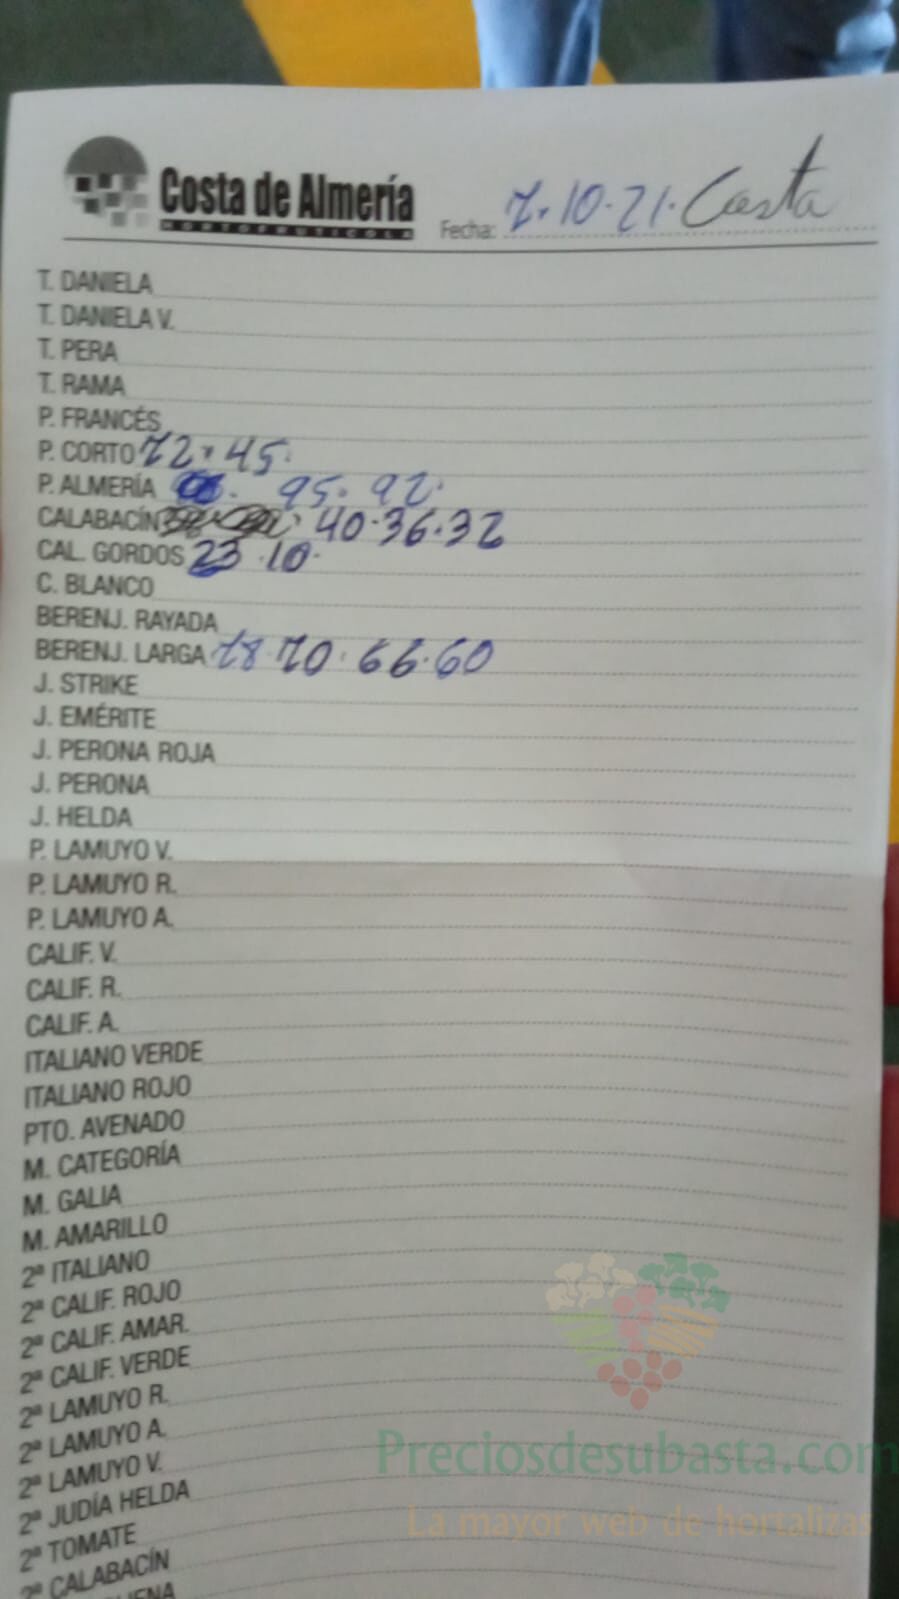 Costa de Almería
HORTOFRUTICOLA
Fecha: 7.10.21. Costa
T. DANIELA
T. DANIELA V.
T. PERA
T. RAMA
P. FRANCÉS
P. CORTO 72.45.
P. ALMERÍA 95.92.
CALABACÍN 40.36.32
CAL. GORDOS 23.10.
C. BLANCO
BERENJ. RAYADA
BERENJ. LARGA 78.70.66.60
J. STRIKE
J. EMÉRITE
J. PERONA ROJA
J. PERONA
J. HELDA
P. LAMUYO V.
P. LAMUYO R.
P. LAMUYO A.
CALIF. V.
CALIF. R.
CALIF. A.
ITALIANO VERDE
ITALIANO ROJO
PTO. AVENADO
M. CATEGORÍA
M. GALIA
M. AMARILLO
2ª ITALIANO
2ª CALIF. ROJO
2ª CALIF. AMAR.
2ª CALIF. VERDE
2ª LAMUYO R.
2ª LAMUYO A.
2ª LAMUYO V.
2ª JUDÍA HELDA
2ª TOMATE
2ª CALABACÍN
Preciosdesubasta.com
La mayor web de hortalizas